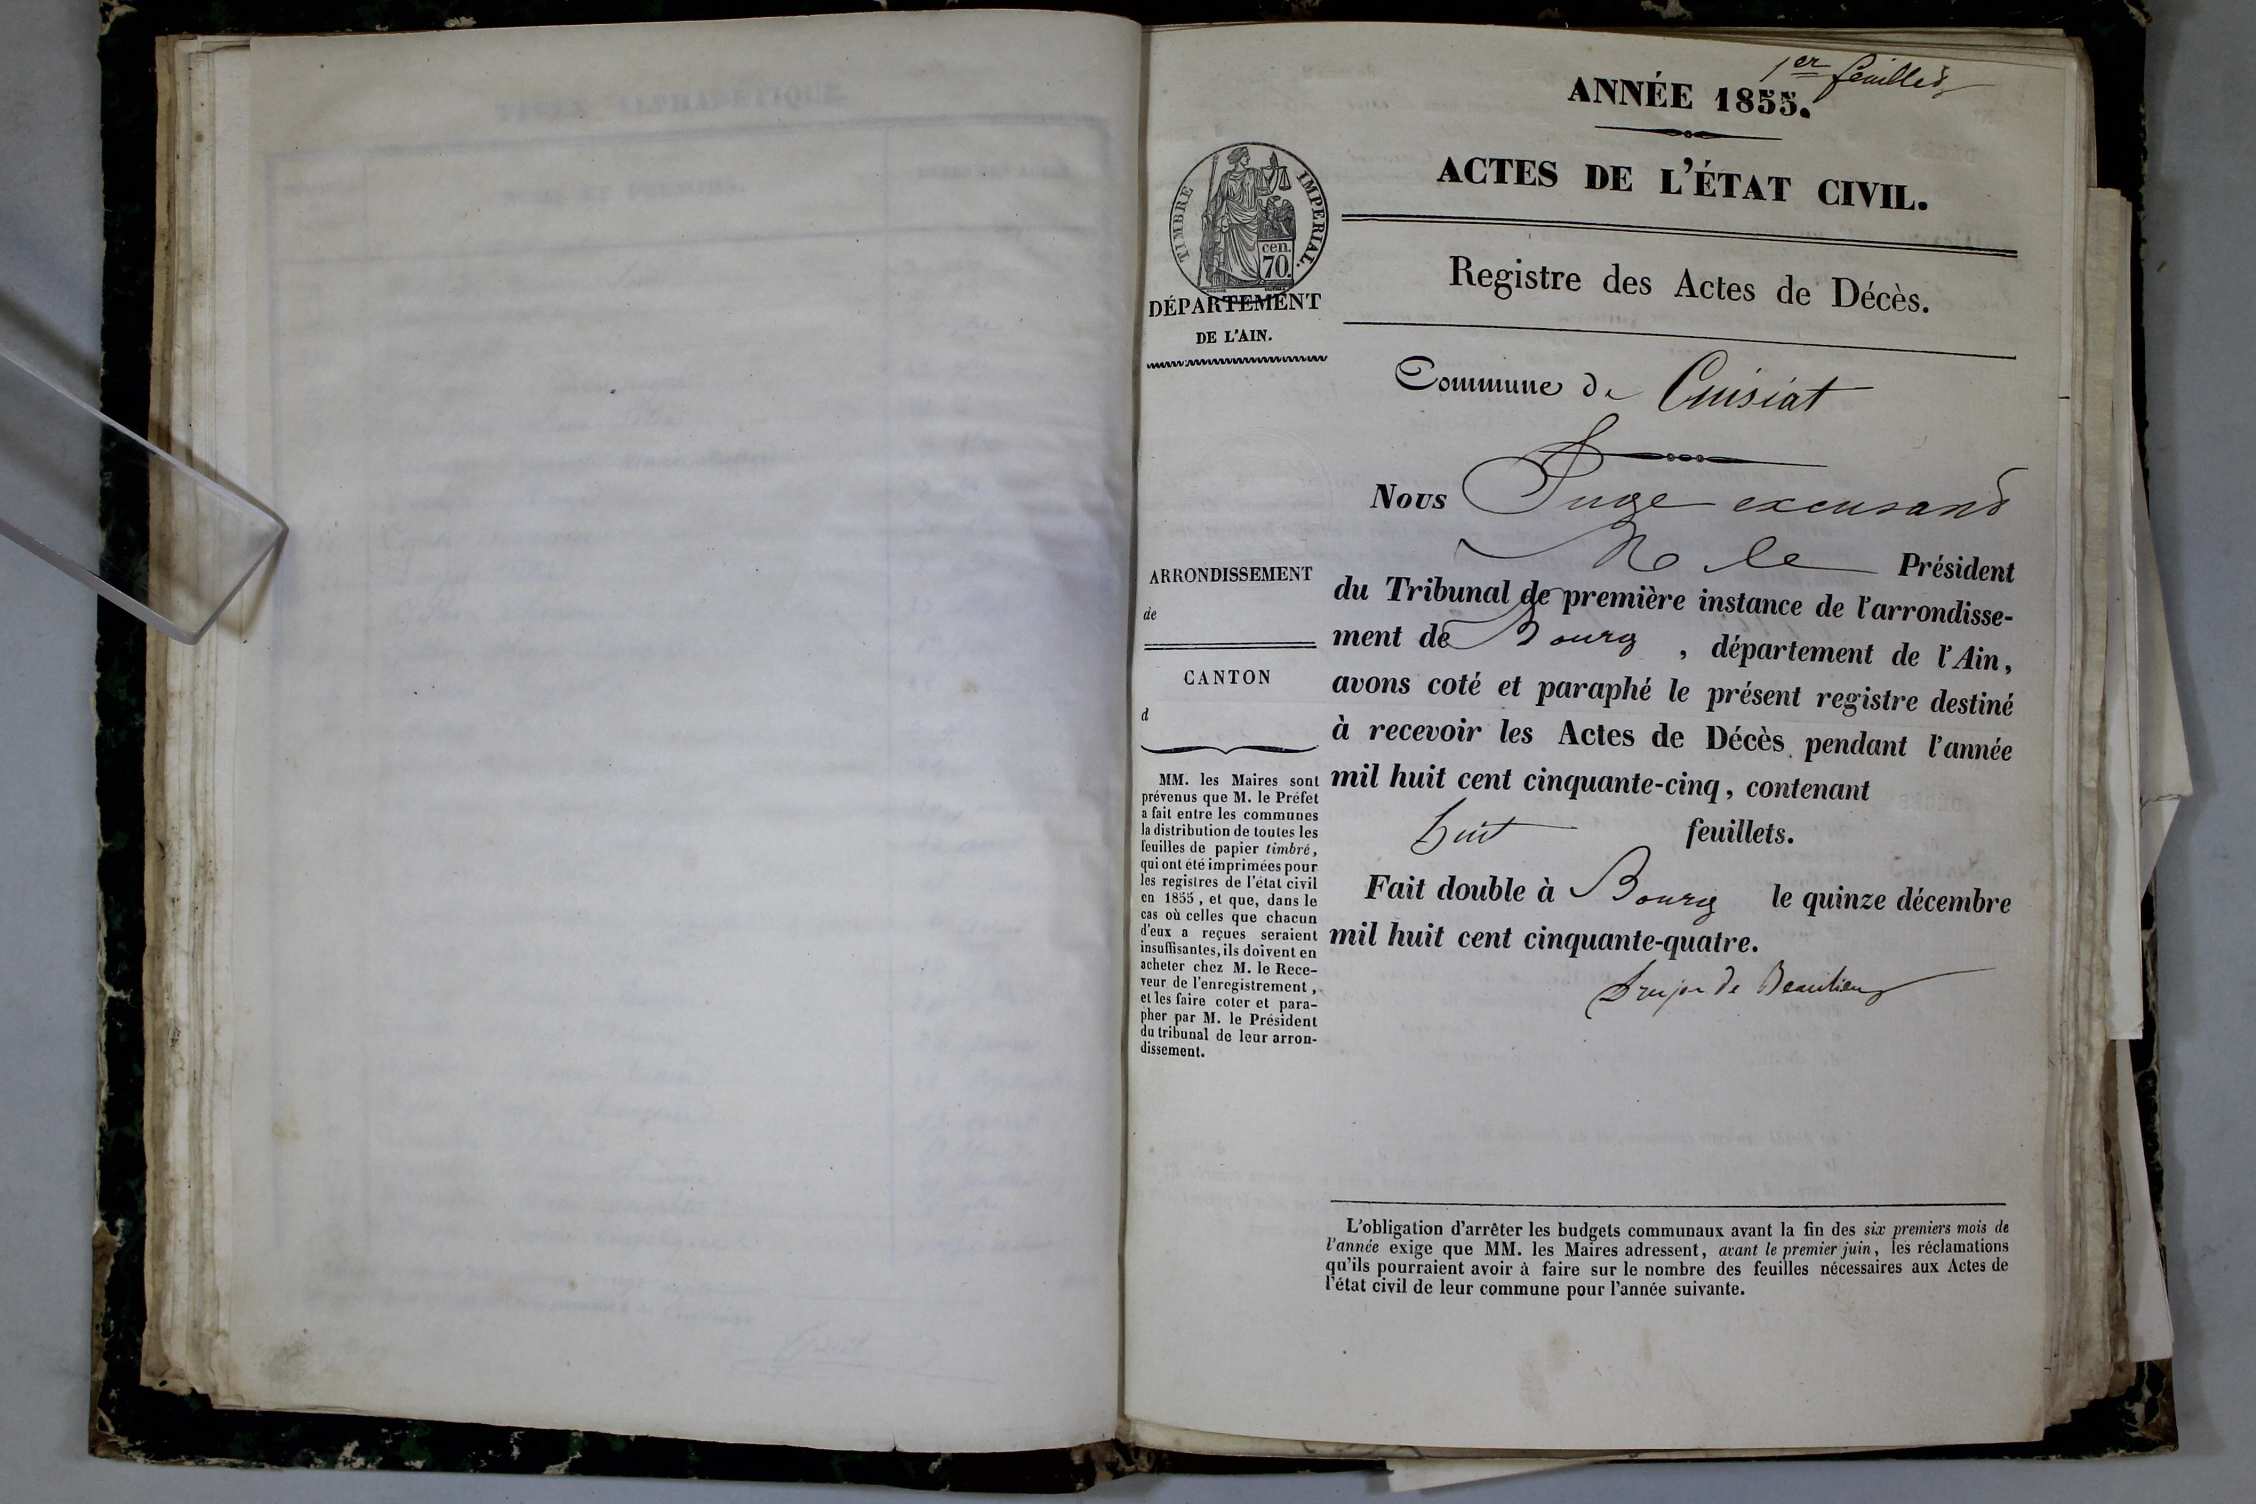 1er feuillet
ANNÉE 1855.
ACTES DE L'ÉTAT CIVIL.
TIMBRE IMPERIAL.
cen.
70.
DÉPARTEMENT
DE L'AIN.
Registre des Actes de Décès.
Commune de Cuisiat
Nous Juge excusant
M le Président
du Tribunal de première instance de l'arrondisse-
ment de Bourg , département de l'Ain,
avons coté et paraphé le présent registre destiné
à recevoir les Actes de Décès pendant l'année
mil huit cent cinquante-cinq, contenant
huit feuillets.
Fait double à Bourg le quinze décembre
mil huit cent cinquante-quatre.
de Beaulieu
ARRONDISSEMENT
de
CANTON
d
MM. les Maires sont
prévenus que M. le Préfet
a fait entre les communes
la distribution de toutes les
feuilles de papier timbré,
qui ont été imprimées pour
les registres de l'état civil
en 1855, et que, dans le
cas où celles que chacun
d'eux a reçues seraient
insuffisantes, ils doivent en
acheter chez M. le Rece-
veur de l'enregistrement,
et les faire coter et para-
pher par M. le Président
du tribunal de leur arron-
dissement.
L'obligation d'arrêter les budgets communaux avant la fin des six premiers mois de
l'année exige que MM. les Maires adressent, avant le premier juin, les réclamations
qu'ils pourraient avoir à faire sur le nombre des feuilles nécessaires aux Actes de
l'état civil de leur commune pour l'année suivante.